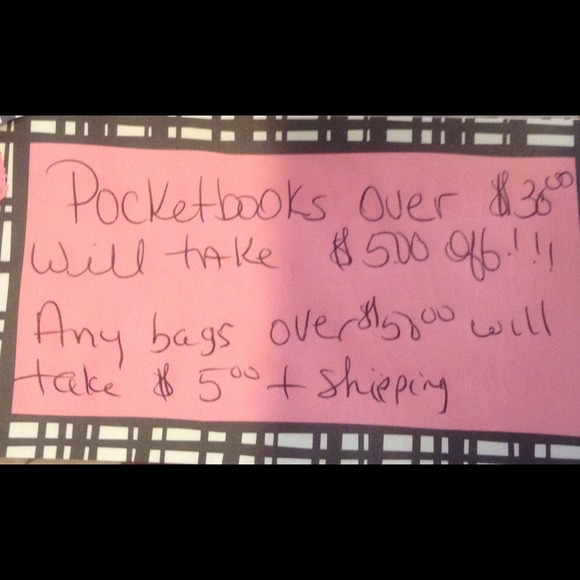 Pocketbooks over $30⁰⁰
Will take $5.00 off!!!
Any bags over $50⁰⁰ will
take $5⁰⁰ + Shipping